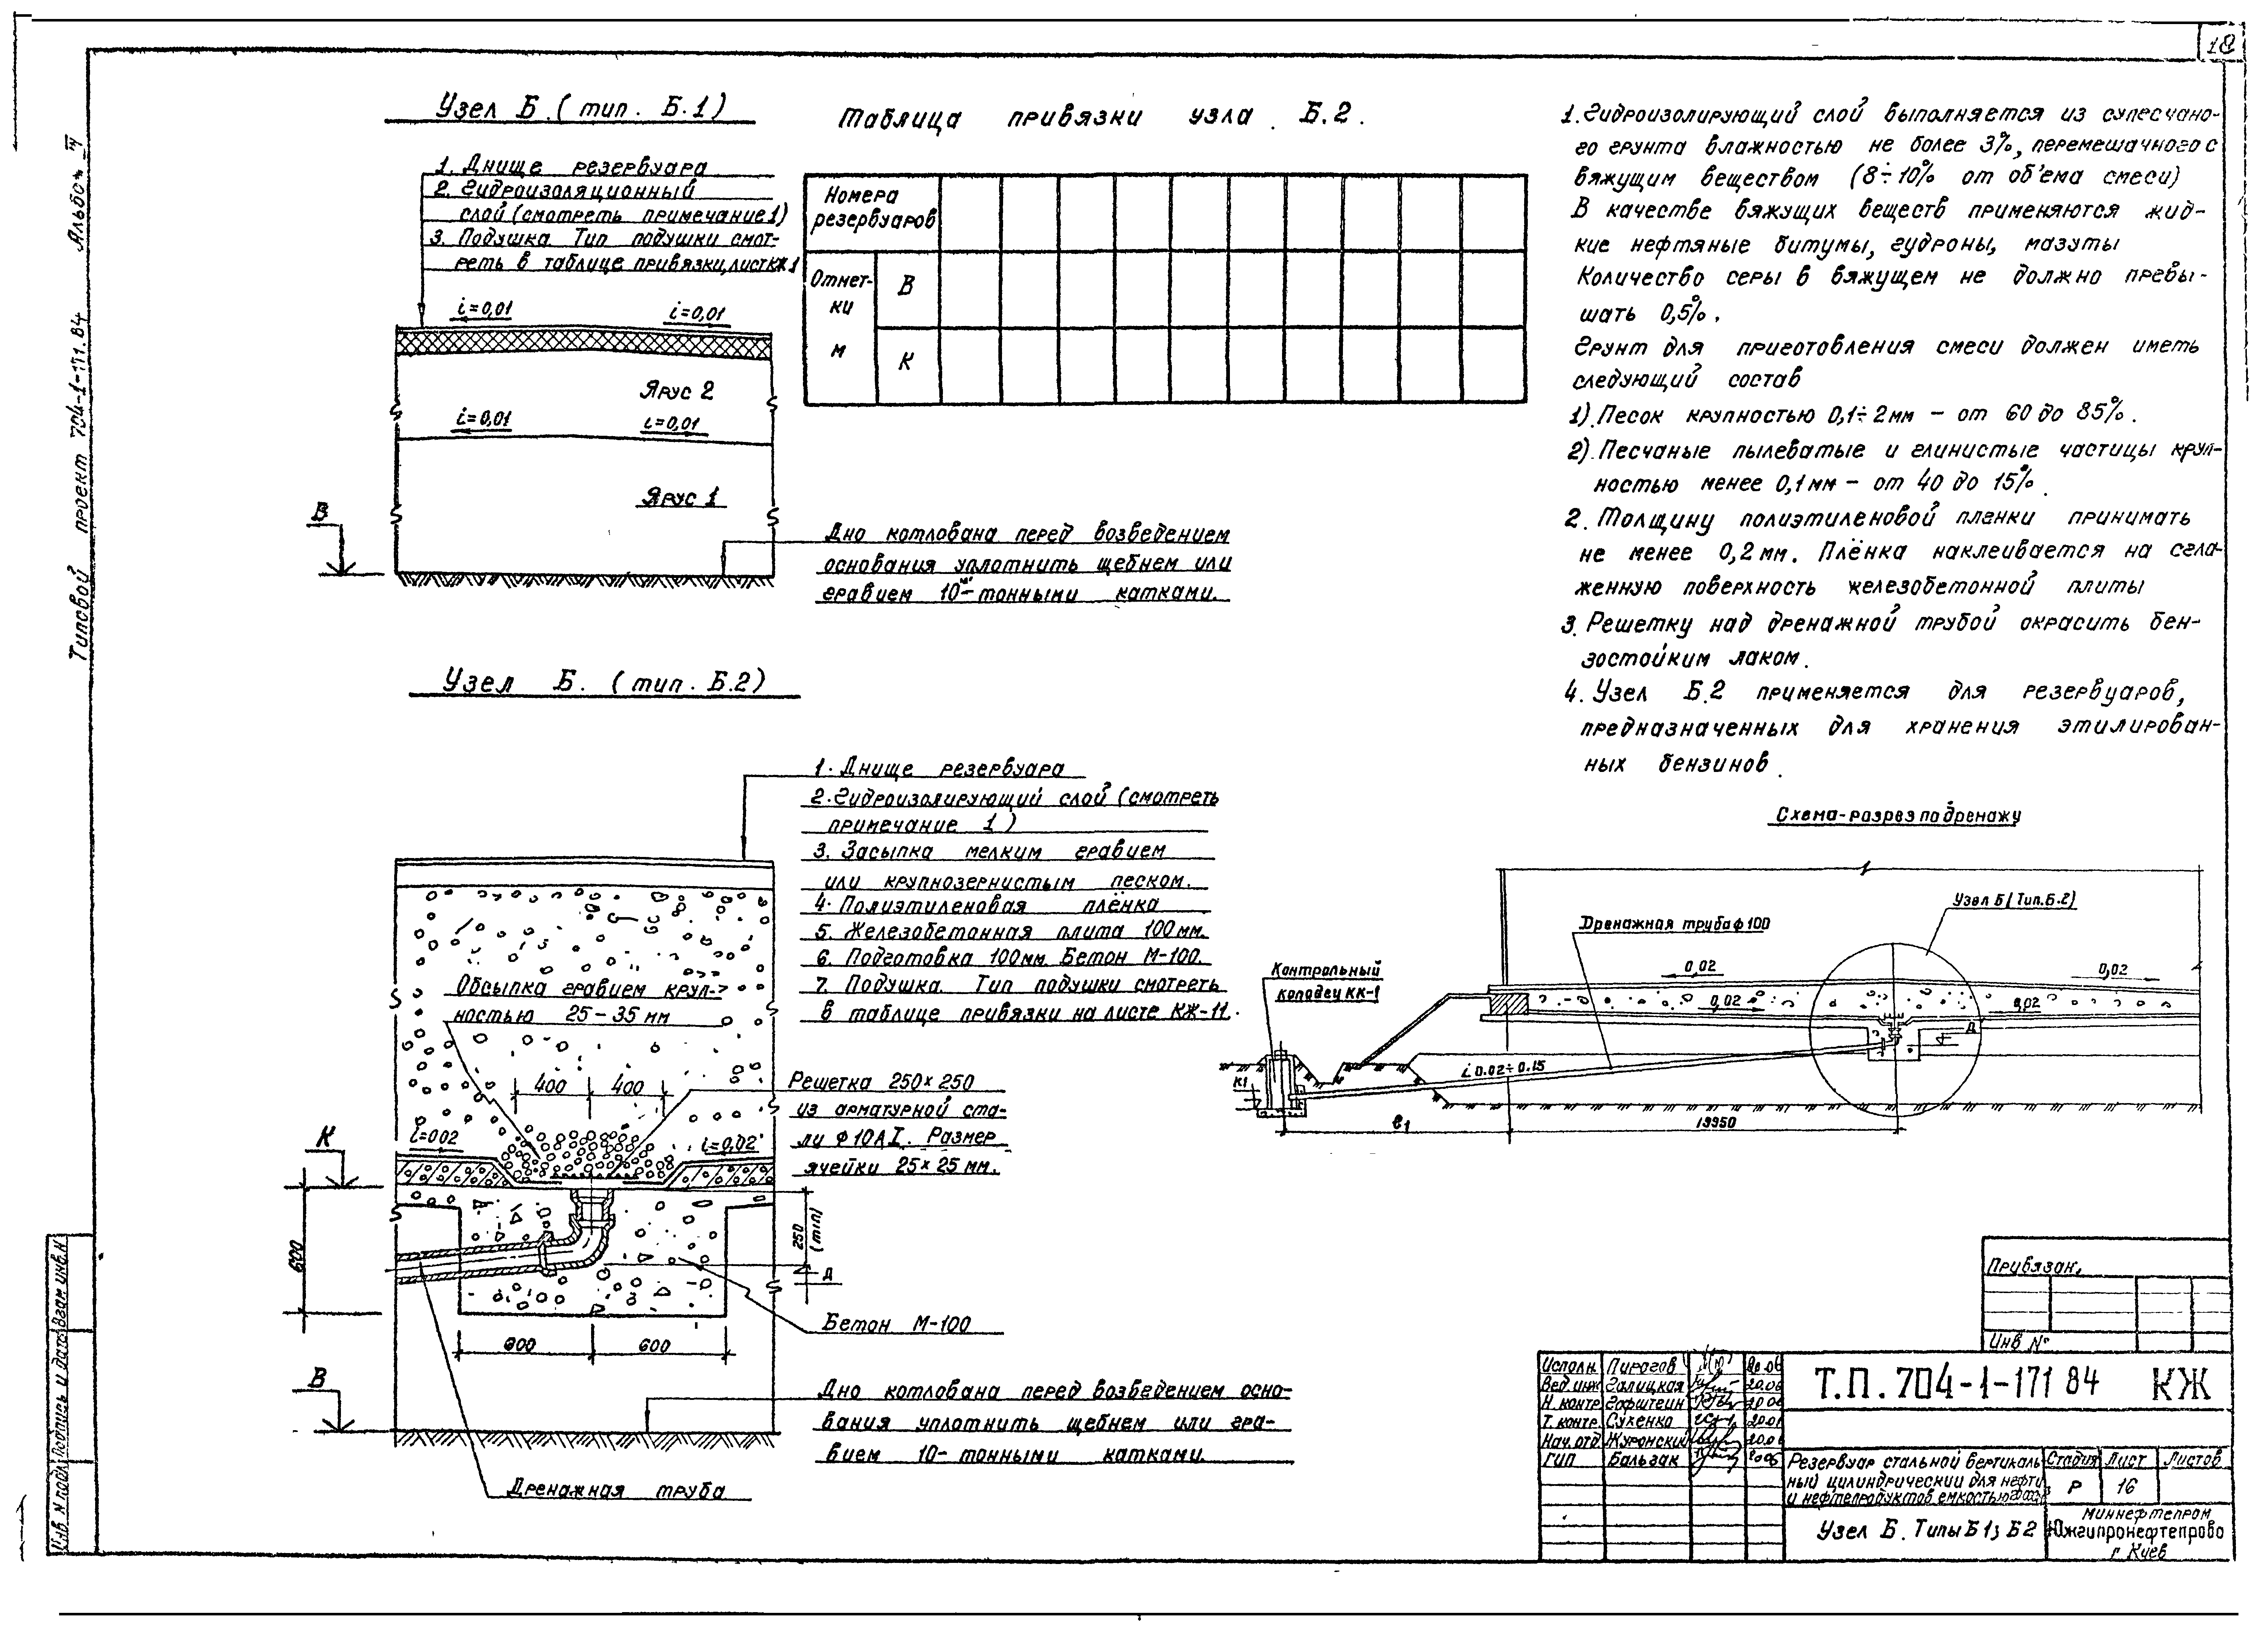 18
Альбом IV
Типовой проект 704-1-171.84
Узел Б (тип. Б.1)
1. Днище резервуара
2. Гидроизоляционный
слой (смотреть примечание 1)
3. Подушка Тип подушки смот-
реть в таблице привязки, лист КЖ 1
i=0,01
i=0,01
Ярус 2
i=0,01
i=0,01
Ярус 1
В
Дно котлована перед возведением
основания уплотнить щебнем или
гравием 10-тонными катками.
Таблица привязки узла Б.2.
Номера
резервуаров
Отмет-
ки
м
В
К
1. Гидроизолирующий слой выполняется из супесчано-
го грунта влажностью не более 3%, перемешачного с
вяжущим веществом (8÷10% от об'ема смеси)
В качестве вяжущих веществ применяются жид-
кие нефтяные битумы, гудроны, мазуты
Количество серы в вяжущем не должно превы-
шать 0,5%.
Грунт для приготовления смеси должен иметь
следующий состав
1). Песок крупностью 0,1÷2мм - от 60 до 85%.
2). Песчаные пылеватые и глинистые частицы круп-
ностью менее 0,1мм - от 40 до 15%.
2. Толщину полиэтиленовой пленки принимать
не менее 0,2мм. Плёнка наклеивается на сгла-
женную поверхность железобетонной плиты
3. Решетку над дренажной трубой окрасить бен-
зостойким лаком.
4. Узел Б.2 применяется для резервуаров,
предназначенных для хранения этилирован-
ных бензинов.
Узел Б. (тип. Б.2)
1. Днище резервуара
2. Гидроизолирующий слой (смотреть
примечание 1)
3. Засыпка мелким гравием
или крупнозернистым песком.
4. Полиэтиленовая плёнка
5. Железобетонная плита 100мм.
6. Подготовка 100мм Бетон М-100.
7. Подушка. Тип подушки смотреть
в таблице привязки на листе КЖ-11.
Обсыпка гравием круп-
ностью 25-35 мм
400 400
Решетка 250×250
из арматурной ста-
ли ф10АI. Размер
ячейки 25×25 мм.
i=002
i=0,02
К
600
250
(min)
Д
600
600
Бетон М-100
В
Дно котлована перед возведением осно-
вания уплотнить щебнем или гра-
вием 10-тонными катками.
Дренажная труба
Схема-разрез по дренажу
Узел Б (Тип.Б.2)
Дренажная труба ф100
Контрольный
колодец КК-1
0,02
0,02
0,02
0,02
Д
К1
i 0.02÷0.15
в1
13950
Привязан.
Инв №
Исполн. Пирогов 20.06
Вед.инж Галицкая 20.06
Н. контр. Гофштеин 20 06
Т. контр. Сухенко 20.06
Нач. отд. Журомский 20.06
ГИП Бальзак 2006
Т.П. 704-1-171 84 КЖ
Резервуар стальной вертикаль
ный цилиндрический для нефти
и нефтепродуктов емкостью
Стадия Лист Листов
Р 16
Узел Б. Типы Б1; Б2
Миннефтепром
Южгипронефтепрово
г Киев
Инв. N подл. Подпись и дата Взам инв.N